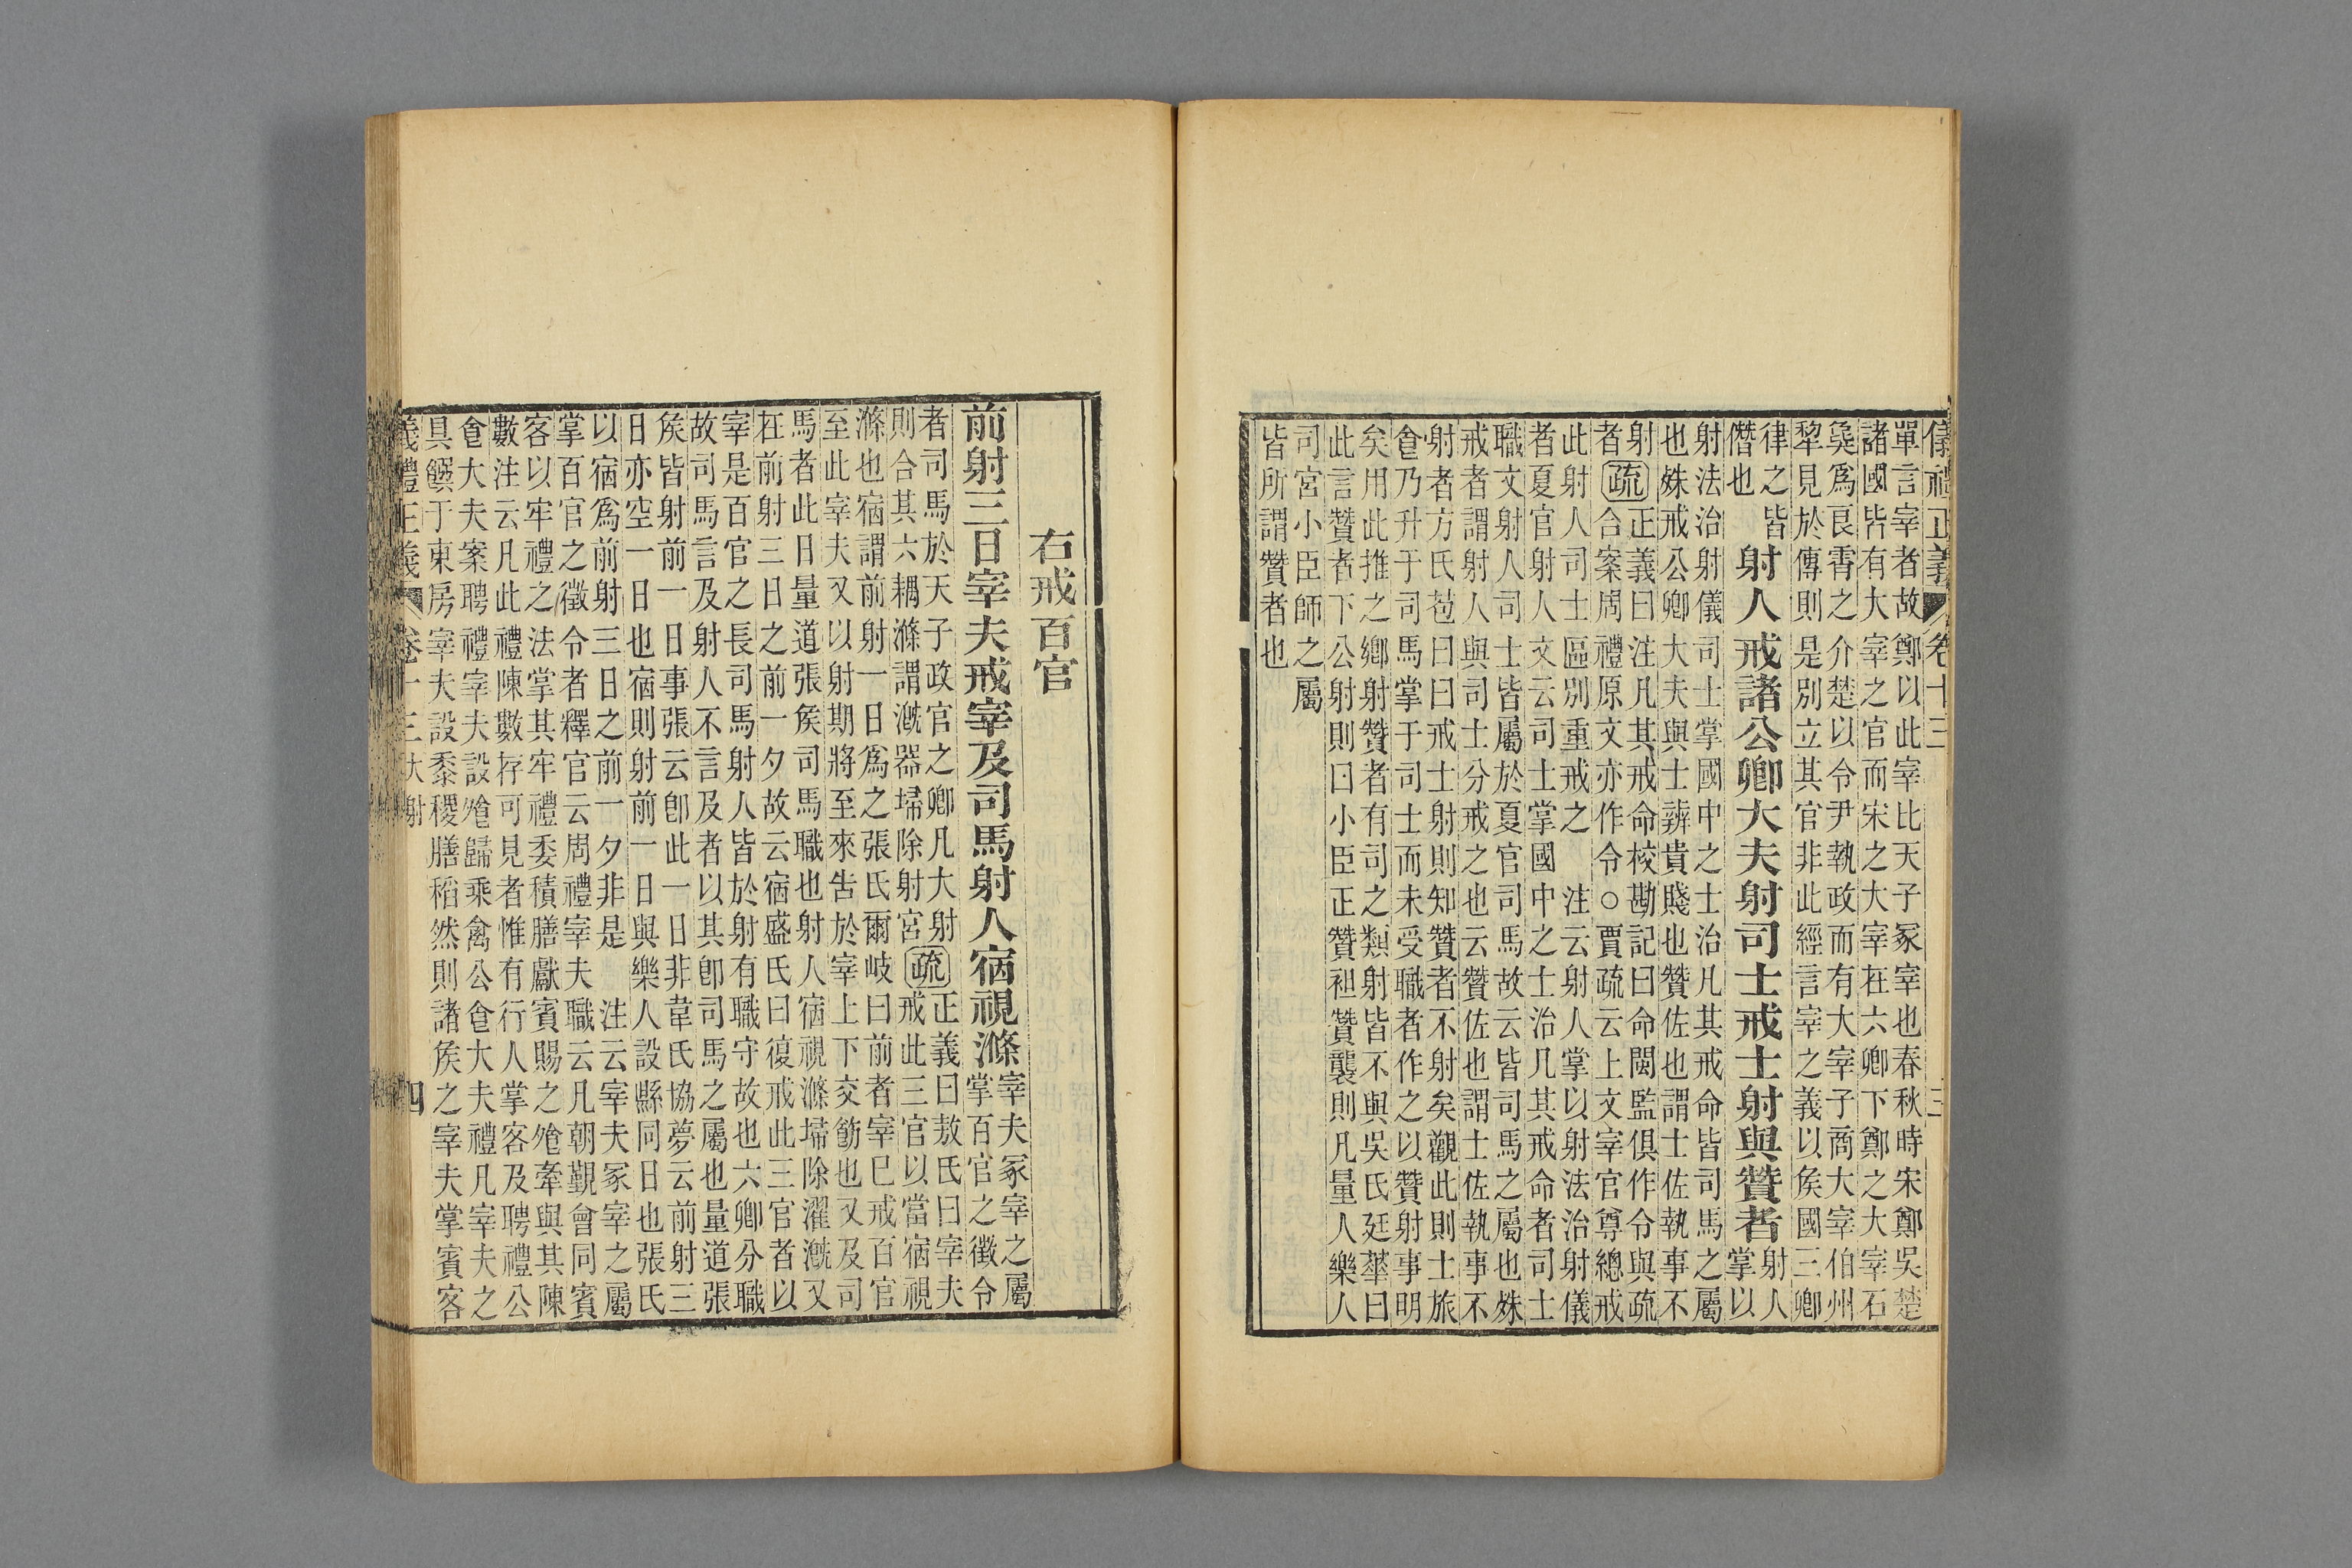 儀禮正義 卷十三 三
單言宰者故鄭以此宰比天子冢宰也春秋時宋鄭吳楚
諸國皆有大宰之官而宋之大宰在六卿下鄭之大宰石
㚟爲良霄之介楚以令尹執政而有大宰子商大宰伯州
犂見於傳則是別立其官非此經言宰之義以矦國三卿
律之皆
僭也
射人戒諸公卿大夫射司士戒士射與贊者
射人
掌以
射法治射儀司士掌國中之士治凡其戒命皆司馬之屬
也殊戒公卿大夫與士辨貴賤也贊佐也謂士佐執事不
射
者疏正義曰注凡其戒命校勘記曰命閩監俱作令與疏
合案周禮原文亦作令○賈疏云上文宰官尊總戒
此射人司士區別重戒之 注云射人掌以射法治射儀
者夏官射人文云司士掌國中之士治凡其戒命者司士
職文射人司士皆屬於夏官司馬故云皆司馬之屬也殊
戒者謂射人與司士分戒之也云贊佐也謂士佐執事不
射者方氏苞曰曰戒士射則知贊者不射矣觀此則士旅
㑹乃升于司馬掌于司士而未受職者作之以贊射事明
矣用此推之鄉射贊者有司之類射皆不與吳氏廷華曰
此言贊者下公射則曰小臣正贊袒贊襲則凡量人樂人
司宮小臣師之屬
皆所謂贊者也
右戒百官
前射三日宰夫戒宰及司馬射人宿視滌
宰夫冢宰之屬
掌百官之徵令
者司馬於天子政官之卿凡大射
則合其六耦滌謂漑器埽除射宮
疏正義曰敖氏曰宰夫
戒此三官以當宿視
滌也宿謂前射一日爲之張氏爾岐曰前者宰巳戒百官
至此宰夫又以射期將至來告於宰上下交飭也又及司
馬者此日量道張矦司馬職也射人宿視滌埽除濯漑又
在前射三日之前一夕故云宿盛氏曰復戒此三官者以
宰是百官之長司馬射人皆於射有職守故也六卿分職
故司馬言及射人不言及者以其卽司馬之屬也量道張
矦皆射前一日事張云卽此一日非韋氏協夢云前射三
日亦空一日也宿則射前一日與樂人設縣同日也張氏
以宿爲前射三日之前一夕非是 注云宰夫冢宰之屬
掌百官之徵令者釋官云周禮宰夫職云凡朝覲會同賓
客以牢禮之法掌其牢禮委積膳獻賓賜之飧牽與其陳
數注云凡此禮陳數存可見者惟有行人掌客及聘禮公
食大夫案聘禮宰夫設飧歸乘禽公食大夫禮凡宰夫之
具饌于東房宰夫設黍稷膳稻然則諸矦之宰夫掌賓客
義禮正義 卷十三大射 四